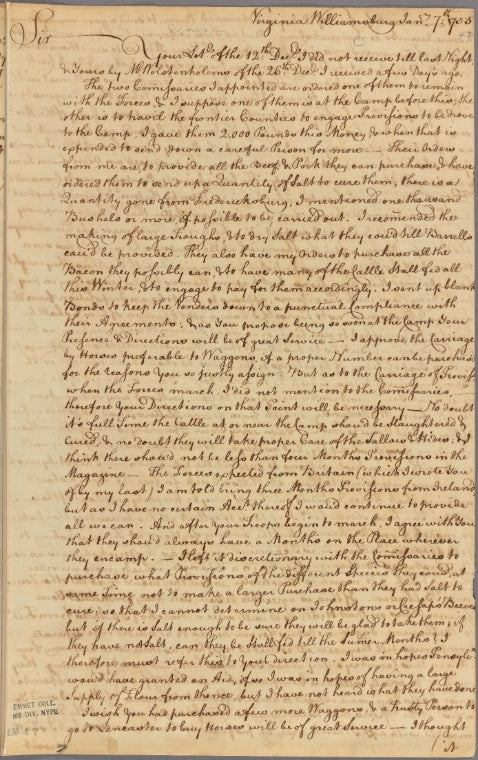 Virginia Williamsburg Janry 7th 1755
47
Sir
Your Letr of the 12th Decr I did not receive till last Night
& Yours by Mr Wolstenholme of the 26th Decr I received a few Days ago.
The two Comissaries I appointed are ordered one of them to remain
with the Forces, & I suppose one of them is at the Camp before this; the
other is to travil the frontier Counties to engage Provisions to be drove
to the Camp. I gave them 2,000 Pounds this Money, & when that is
expended to send down a careful Person for more — Their Orders
from me are to provide all the Beef & Pork they can purchase, & have
ordered them to send up a Quantity of Salt to cure them; there is a
Quantity gone from Fredericksburg, I mentioned one thousand
Bushels or more if possible to be carried out. I recomended the
making of large Troughs, & to dry Salt what they could till Barrells
cou'd be provided. They also have my Orders to purchase all the
Bacon they possibly can, & to have many of the Cattle Stall fed all
this Winter & to engage to pay for them accordingly; I sent up blank
Bonds to keep the Venders down to a punctual Compliance with
their Agreements; & as You propose being so soon at the Camp Your
Presence & Directions will be of great Service — I approve the Carriage
by Horses preferable to Waggons, if a proper Number can be purchas'd
for the reasons You so justly assign. But as to the Carriage of Provis
when the Forces march, I did not mention to the Comissaries,
therefore Your Directions on that Point will be necessary — No doubt
it's full Time the Cattle at or near the Camp shou'd be Slaughtered &
Cured, & no doubt they will take proper Care of the Tallow & Hides, & I
think there shou'd not be less than four Months Provisions in the
Magazine — The Forces expected from Britain (which I wrote You
of by my last) I am told bring three Months Provisions from Ireland
but as I have no certain Acct thereof I wou'd continue to provide
all we can. And after Your Troops begin to march, I agree with You
that they shou'd always have a Months on the Place wherever
they encamp. — I left it discretionary with the Comissaries to
purchase what Provisions of the different Species they cou'd, at
same Time not to make a larger Purchase than they had Salt to
cure; so that I cannot determine on Johnstons or Cresaps Beeves
but if there is Salt enough to be sure they will be glad to take them; if
they have not Salt, can they be Stall fed till the Sumer Months? I
therefore must refer this to Your direction. I was in hopes Pensylva
wou'd have granted an Aid, if so I was in hopes of having a large
Supply of Flour from thence, but I have not heard what they have done
I wish You had purchased a few more Waggons, & a trusty Person to
go to Lancaster to buy Horses will be of great Service — I thought
it
EMMET COLL.
MS DIV. NYPL
EM